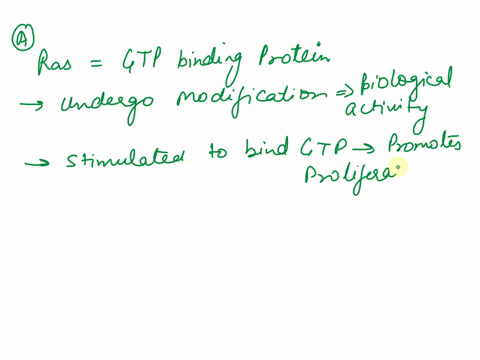 A
Ras = GTP binding Protein
→ undergo modification ⇒ Biological activity
→ Stimulated to bind GTP → Promotes
Prolifera